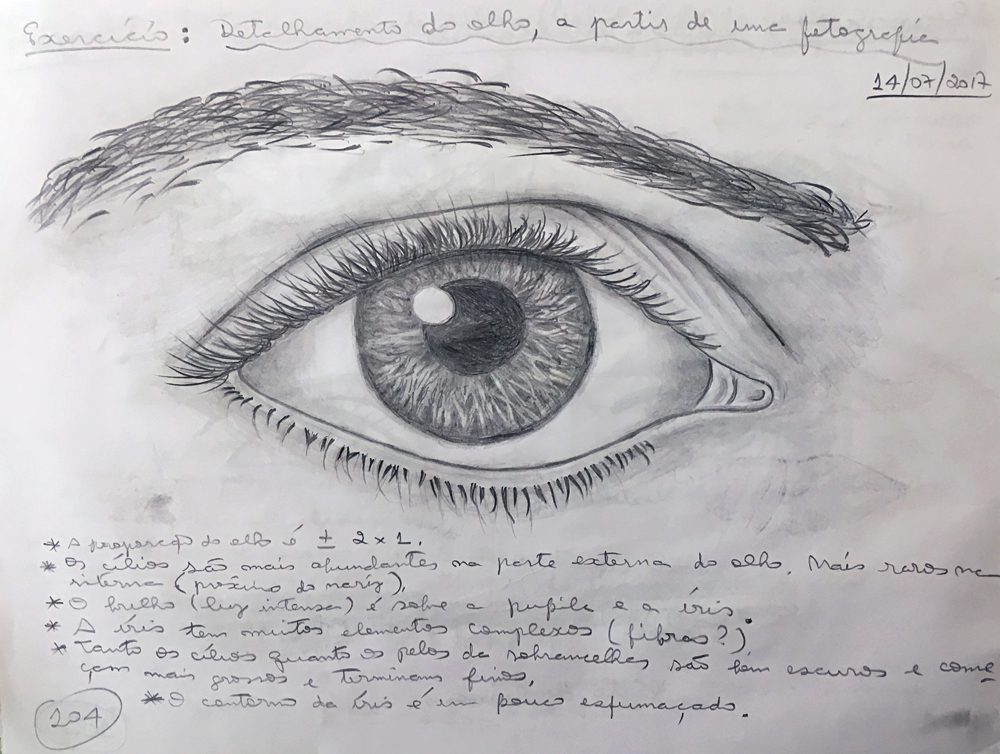 Exercício: Detalhamento do olho, a partir de uma fotografia
14/07/2017
* A proporção do olho é ± 2x1.
* Os cílios são mais abundantes na parte externa do olho. Mais raros na
interna (próximo do nariz),
* O brilho (luz intensa) é sobre a pupila e a íris.
* A íris tem muitos elementos complexos (fibras?)
* Tanto os cílios quanto os pelos da sobrancelhas são bem escuros e come
çam mais grossos e terminam finos,
* O contorno da íris é um pouco esfumaçado.
104